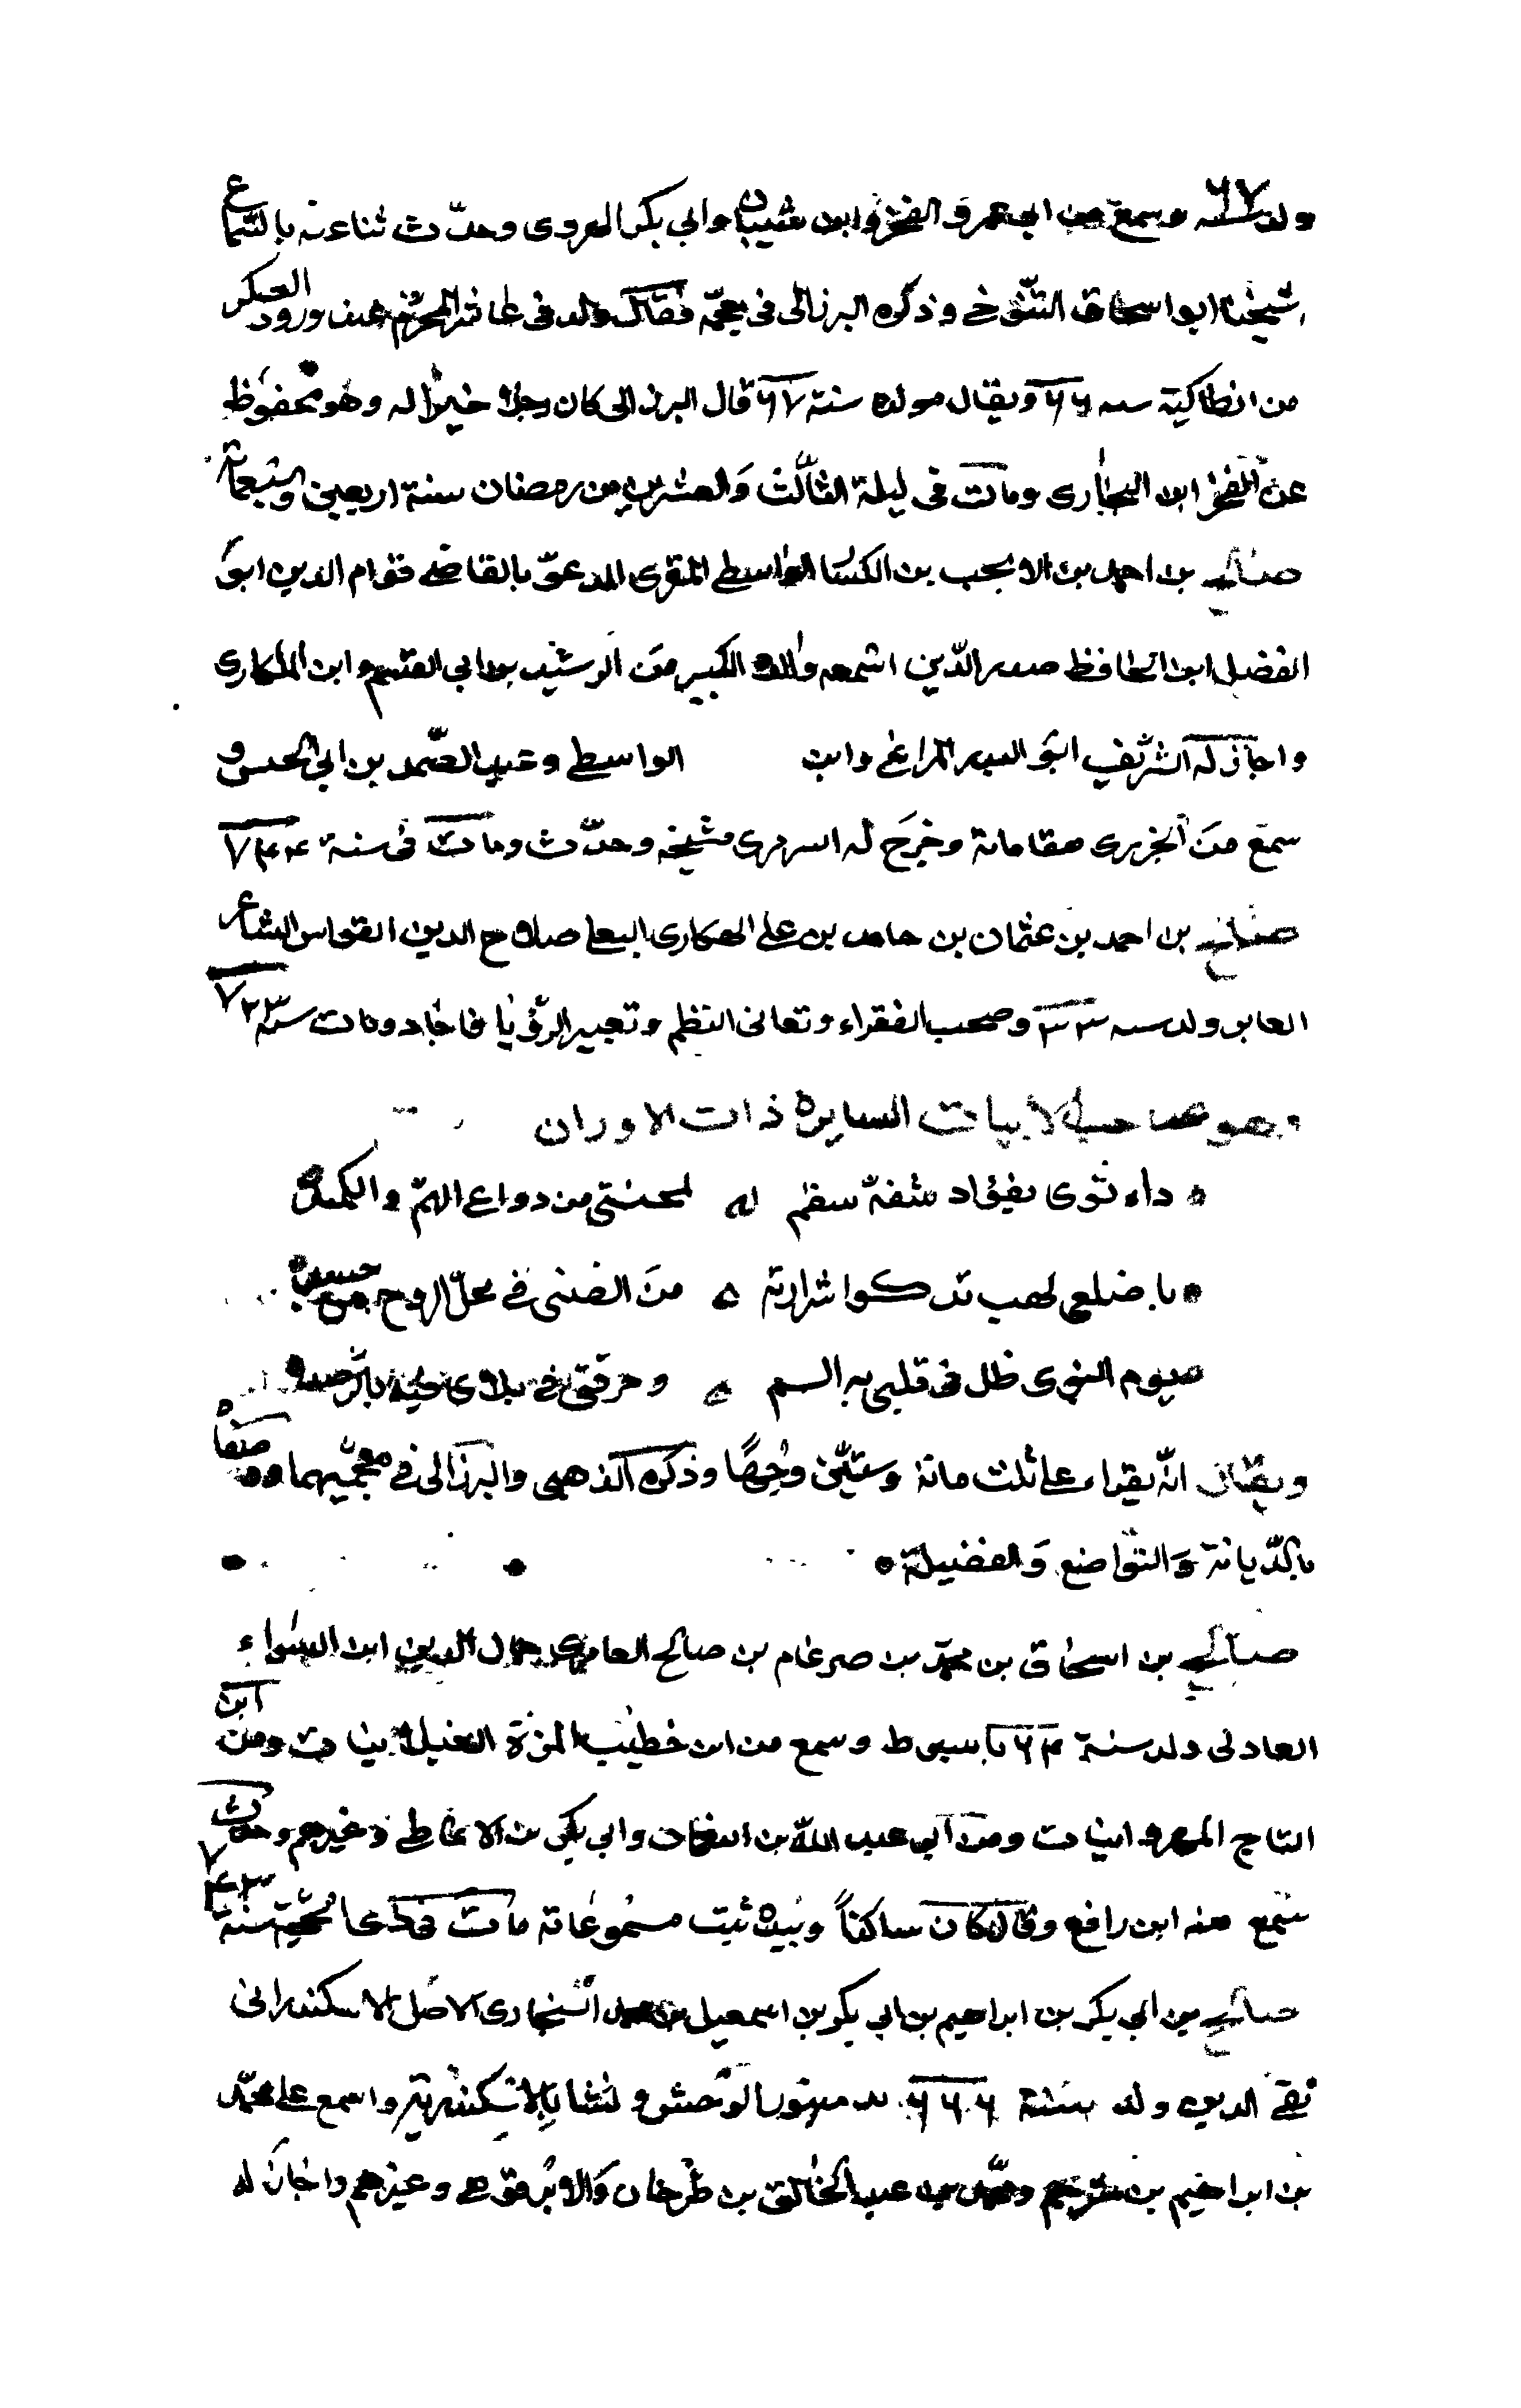 ولد سنة ٦٧ وسمع من ابي عمر و الفخر وابن شيبان وابي بكر الهروى وحدّث ثنا عنه بالسّماع
شيخنا ابو اسحاق التنّوخي وذكره البرزالى فى معجمه فقال ولد فى عاشر المحرّم عند ورود العسكر
من انطاكية سنه ٦٦ ويقال مولده سنة ٦٧ قال البرزالى كان رجلا خيرا له وهو محفوظ
عن الفخر ابن البخارى ومات فى ليلة الثالث والعشرين من رمضان سنة اربعين وسبعمائة
صالح بن احمد بن الانجب بن الكسار الواسطي المقرى المدعوّ بالقاضي قوام الدين ابو
الفضل ابن الحافظ صدر الدّين اسمعه والده الكبير من الرشيد بن ابي القسم وابن
واجاز له الشريف ابو البدر المراغي وابن الواسطي وعبد الصّمد بن ابي الحسن و
سمع من الحريرى مقاماته وخرج له السرمرى مشيخه وحدّث ومات فى سنة ٧٤٤
صالح بن احمد بن عثمان بن حامد بن على الهكارى البعلي صلاح الدين القواس الشاعر
العابر ولد سنه ٣٣ وصحب الفقراء وتعانى النظم وتعبير الرؤيا فاجاد ومات سنه ٧٢٣
وهو صاحب الابيات السايرة ذات الاوزان
داء ثوى بفؤاد شفه سقم لمحنتي من دواعي الهمّ والكمد
باضلعى لهب تذكوا شرارته من الضنى في محلّ الروح من جسدى
يوم النوى ظل فى قلبي به الم وحرقتى في بلاى فيه بالرصد
ويقال انّه يقراء على ثلث مائة وستين وجها وذكره الذهبي والبرزالى في معجميهما ووصفاه
بالدّيانة والتواضع والفضيلة
صالح بن اسحاق بن محمّد بن ضرغام بن صالح العامرى جمال الدين ابن السواء
العادلى ولد سنة ٦٤ باسيوط وسمع من ابن خطيب المزة الغيلانيات ومن ابن
التاج المعرف ومن ابي عبد اللّه بن النعمان وابي بكر بن الانماطي وغيرهم وحدث
سمع منه ابن رافع وقال كان ساكناً وبيده ثبت مسموعاته مات فى ذى الحجّة سنة ٧٤٣
صالح بن ابي بكر بن ابراهيم بن ابي بكر بن اسمعيل بن محمد السنجارى الاصل الاسكندرانى
تقي الدين ولد سنة ٦٦٦ بدمنهور الوحش و نشا بالاسكندرية واسمع على محمّد
بن ابراهيم بن ترجم ومحمّد بن عبد الخالق بن طرخان والابرقوهي وغيرهم واجاز له